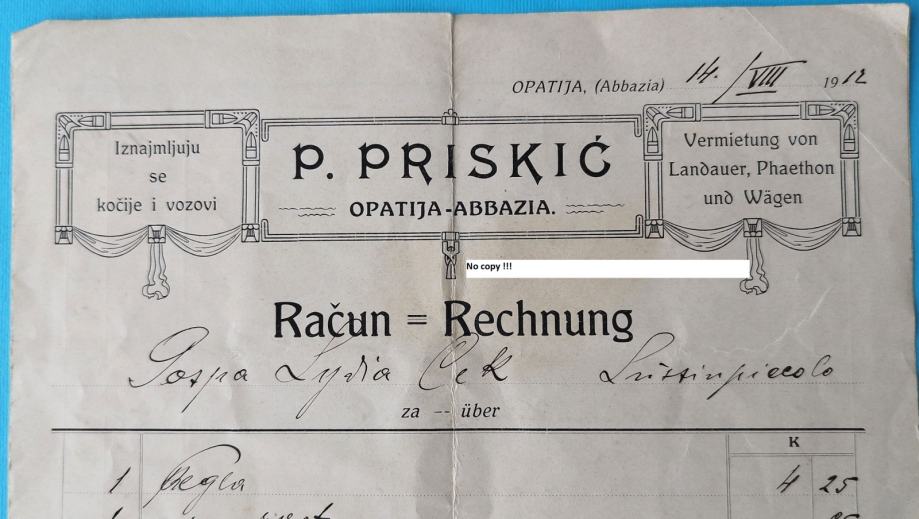 OPATIJA, (Abbazia) 14./VIII 1912
Iznajmljuju
se
kočije i vozovi
P. PRISKIĆ
OPATIJA-ABBAZIA.
Vermietung von
Landauer, Phaethon
und Wägen
No copy !!!
Račun = Rechnung
Gospa Lydia Lussinpiccolo
za -- über
K
1 4 25